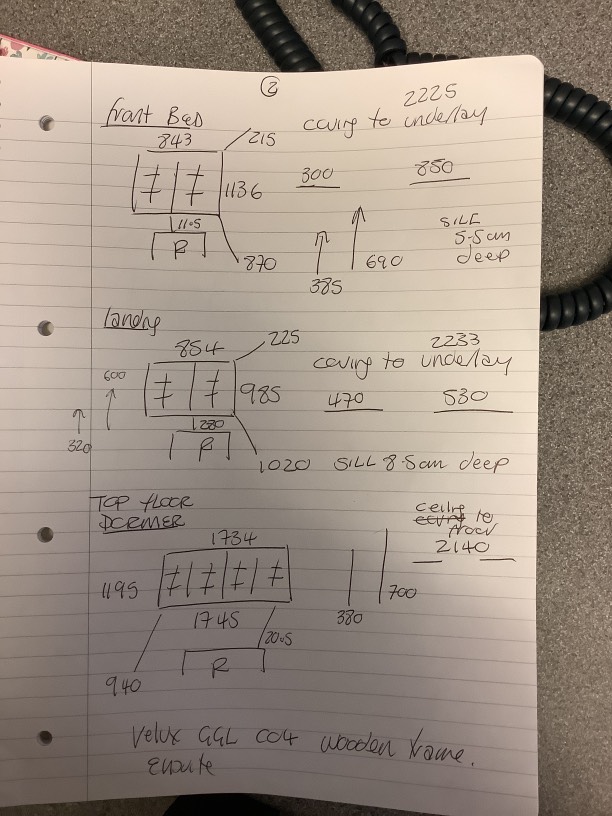 2
Front Bed
2225
coving to underlay
843
215
300
850
1136
1105
R
870
385
690
SILL
5.5cm
deep
landing
854
225
2233
coving to underlay
600
985
470
530
320
1280
R
1020
SILL 8.5cm deep
TOP FLOOR
DORMER
ceiling
coving to
floor
2140
1734
1195
1745
2005
R
940
380
700
Velux GGL CO4 wooden frame.
Ensuite